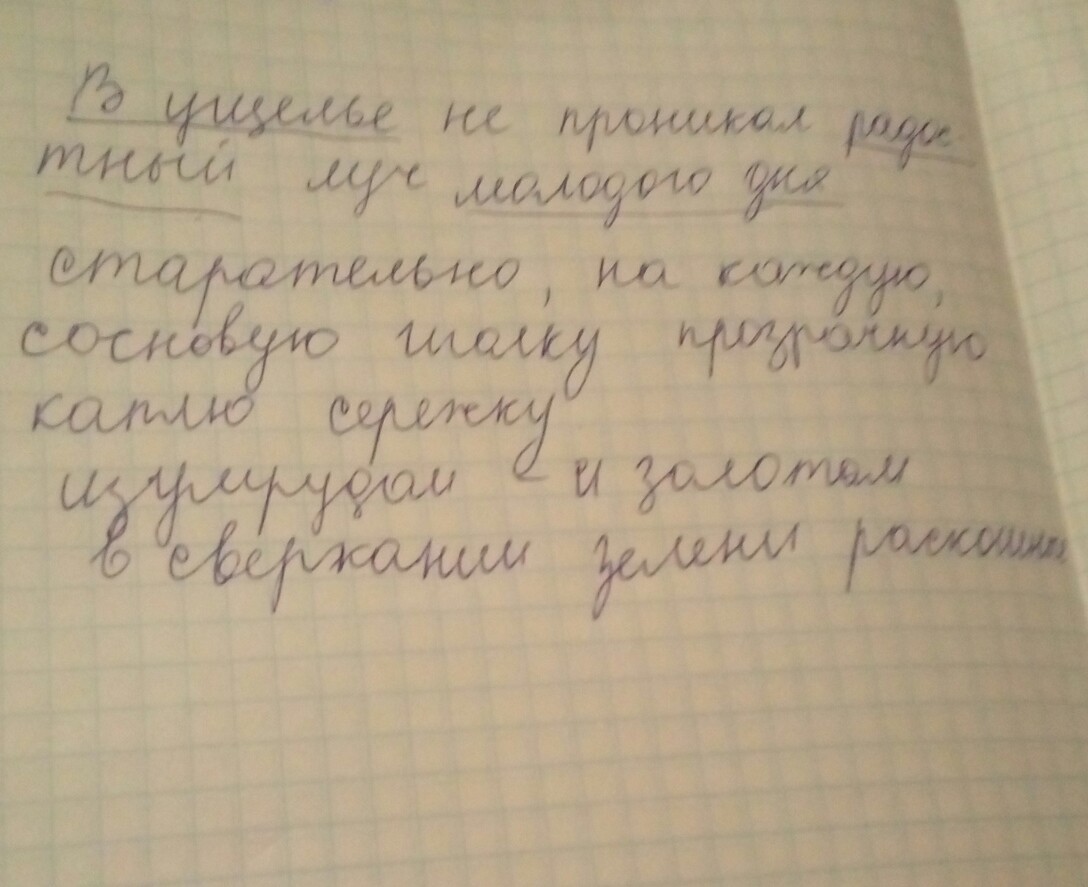 В ущелье не проникал радос
тный луч молодого дня
старательно, на каждую,
сосновую иголку прозрачную
каплю сережку
изумрудом и золотом
в сверкании зелени